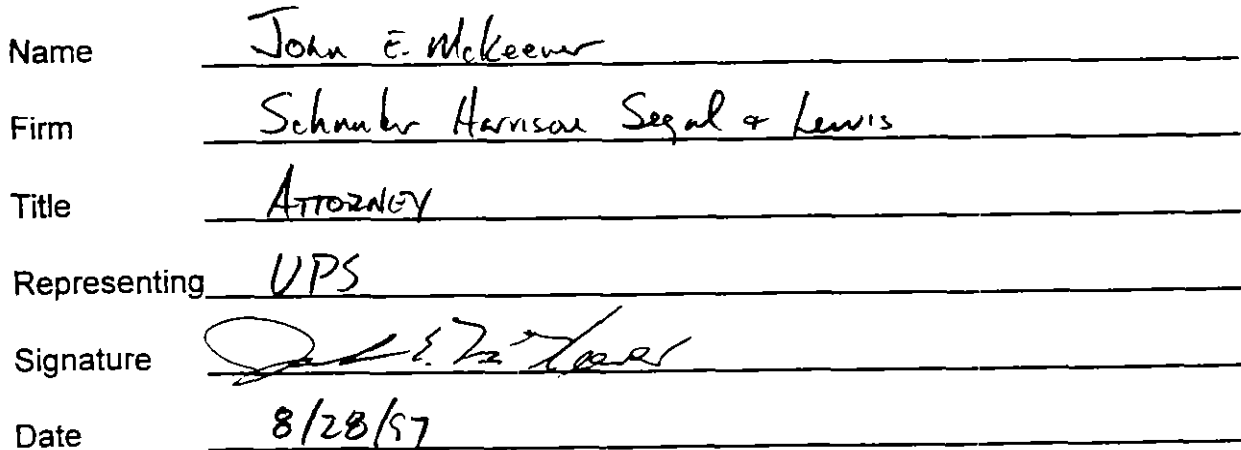 Name John E. McKeever
Firm Schnader Harrison Segal & Lewis
Title ATTORNEY
Representing UPS
Signature John E. McKeever
Date 8/28/97